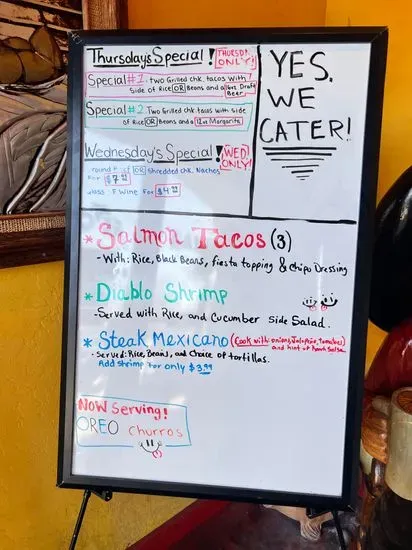 Thursdays Special! THURSDAY ONLY!
Special #1. Two Grilled chk. tacos with
side of Rice OR Beans and a 16oz Draft Beer
Special #2 Two Grilled chk tacos with side
of Rice OR Beans and a 12oz Margarita
Wednesday's Special! WED ONLY!
round OR Shredded chk. Nachos
For $7.99
Wine For $4.99
YES,
WE
CATER!
* Salmon Tacos (3)
- With: Rice, Black Beans, fiesta topping & Chipo Dressing
* Diablo Shrimp
- Served with Rice, and Cucumber side Salad.
* Steak Mexicano (Cook with: onions, Jalapeño, tomatoes)
and hint of Ranch Salsa
- Served: Rice, Beans, and choice of tortillas.
Add shrimp for only $3.99
NOW Serving!
OREO Churros